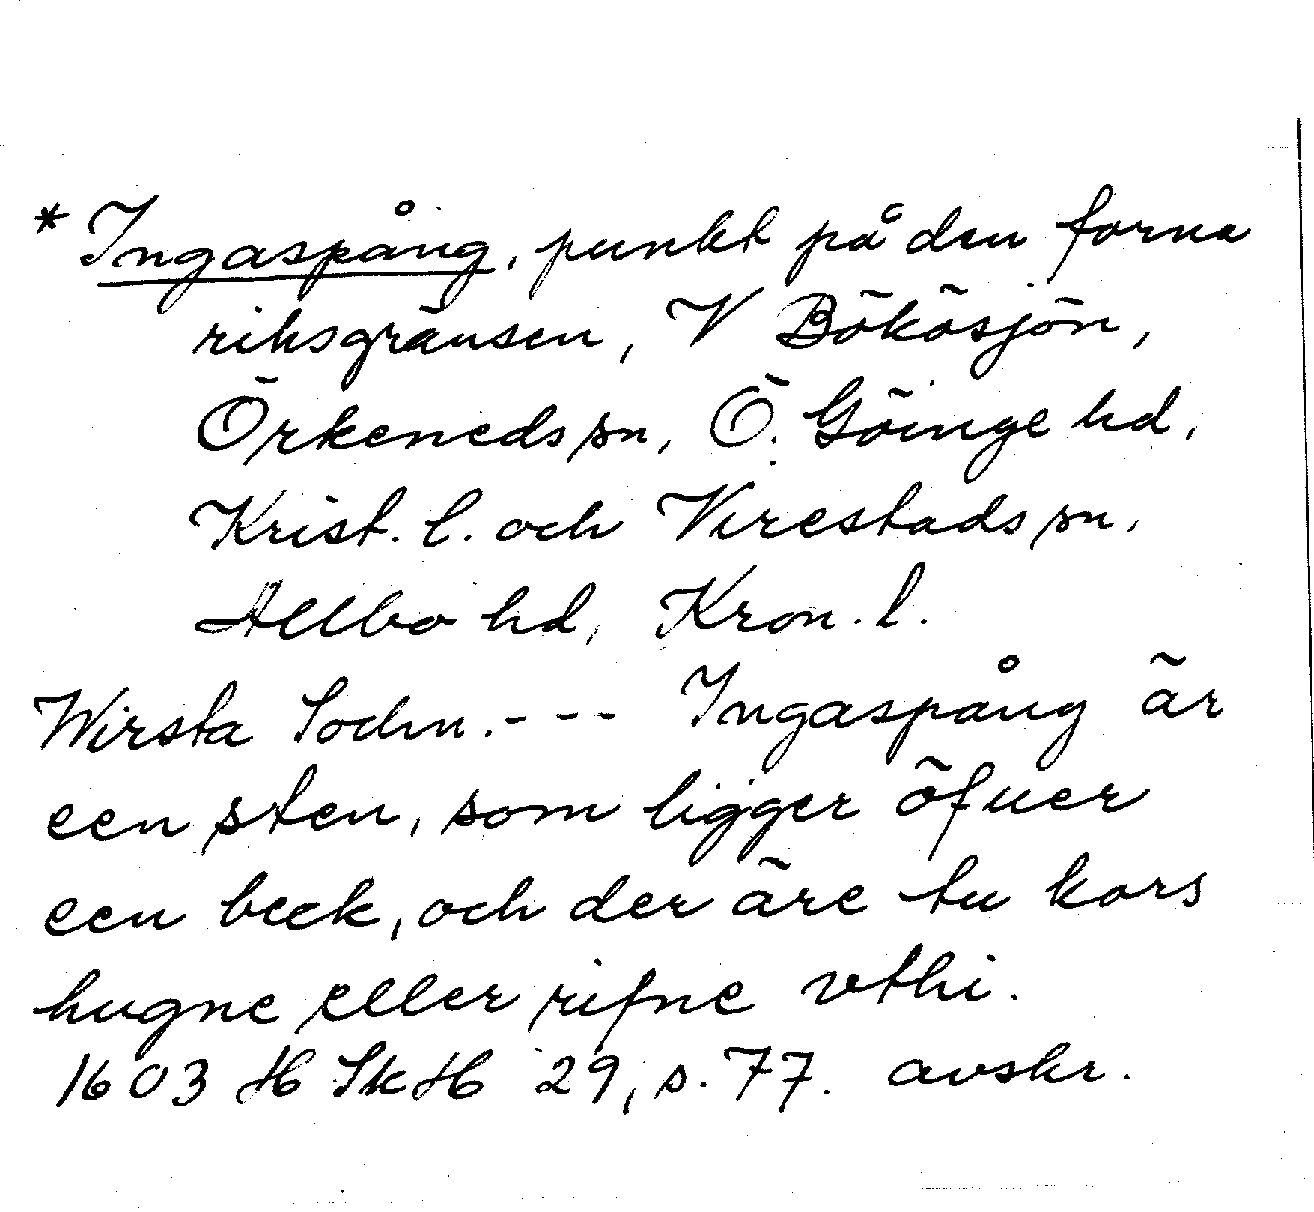 * Ingaspång, punkt på den forna
riksgränsen, V Bökösjön,
Örkeneds sn, Ö. Göinge hd,
Krist. l. och Virestads sn,
Allbo hd, Kron. l.
Wirsta Sochn. - - - Ingaspång är
een sten, som ligger öfuer
een beck, och der äre tu kors
hugne eller rifne vthi.
1603 H Sk H 29, s. 77. avskr.